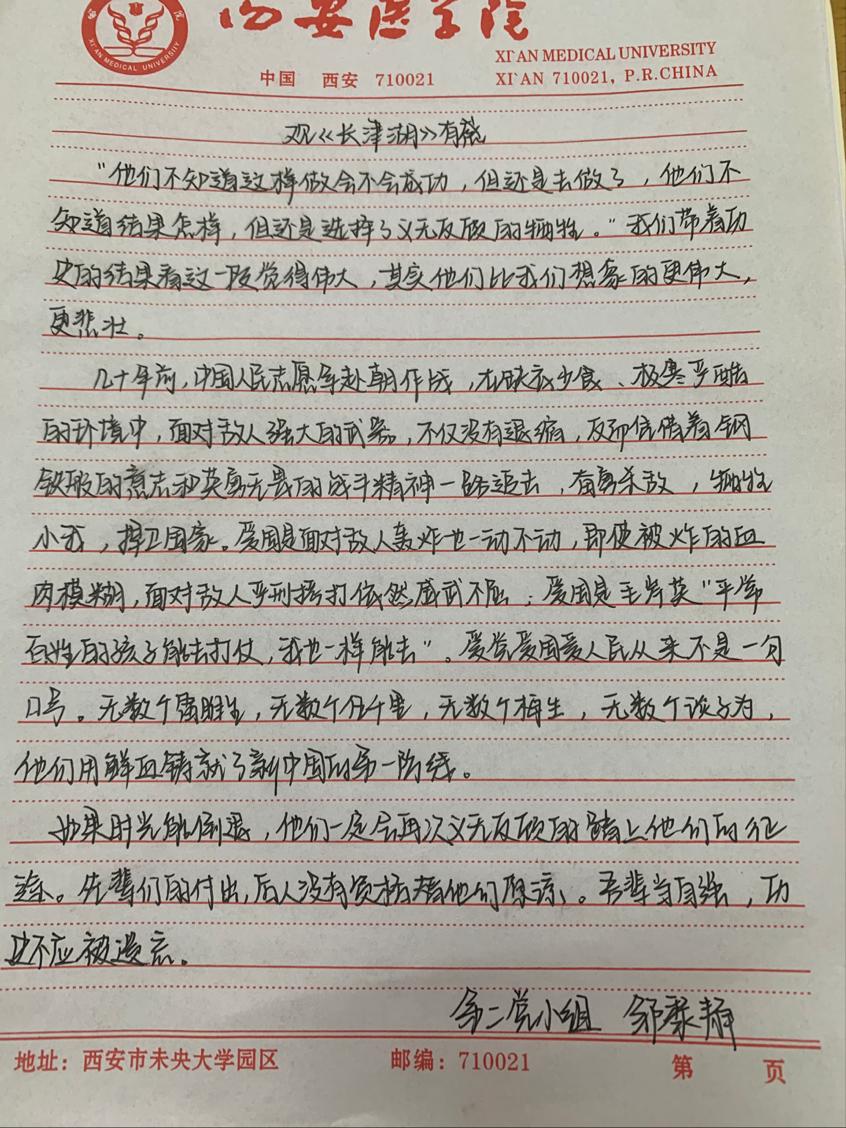 西安医学院
XI'AN MEDICAL UNIVERSITY
XI'AN MEDICAL UNIVERSITY
中国 西安 710021
XI'AN 710021, P.R.CHINA
观《长津湖》有感
“他们不知道这样做会不会成功，但还是去做了，他们不
知道结果怎样，但还是选择了义无反顾的牺牲。”我们带着历
史的结果看这一段觉得伟大，其实他们比我们想象的更伟大，
更悲壮。
几十年前，中国人民志愿军赴朝作战，在缺衣少食、极寒严酷
的环境中，面对敌人强大的武器，不仅没有退缩，反而凭借着钢
铁般的意志和英勇无畏的战斗精神一路追击，奋勇杀敌，牺牲
小我，捍卫国家。爱国是面对敌人轰炸也一动不动，即使被炸的血
肉模糊，面对敌人严刑拷打依然威武不屈；爱国是毛岸英“平常
百姓的孩子能去打仗，我也一样能去”。爱党爱国爱人民从来不是一句
口号。无数个雷睢生，无数个伍千里，无数个梅生，无数个谈子为，
他们用鲜血铸就了新中国的第一防线。
如果时光能倒退，他们一定会再次义无反顾的踏上他们的征
途。先辈们的付出，后人没有资格替他们原谅。吾辈当自强，历
史不应被遗忘。
第二党小组 邹 静
地址：西安市未央大学园区 邮编：710021 第 页